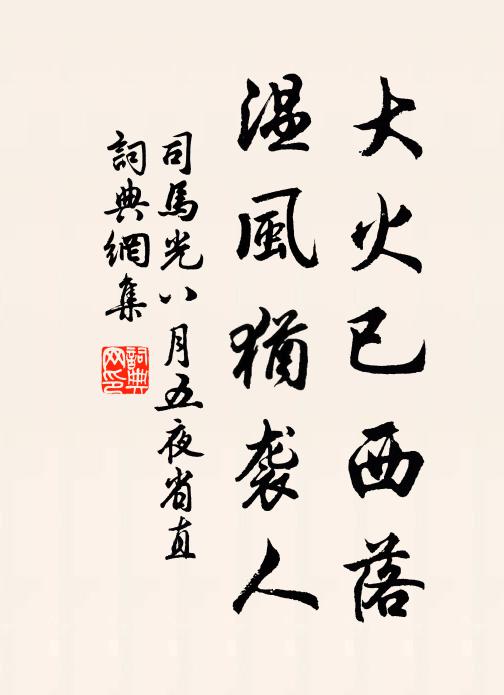 大火已西落
温風猶襲人
司馬光八月五夜省直
詞典網集
詞典网印